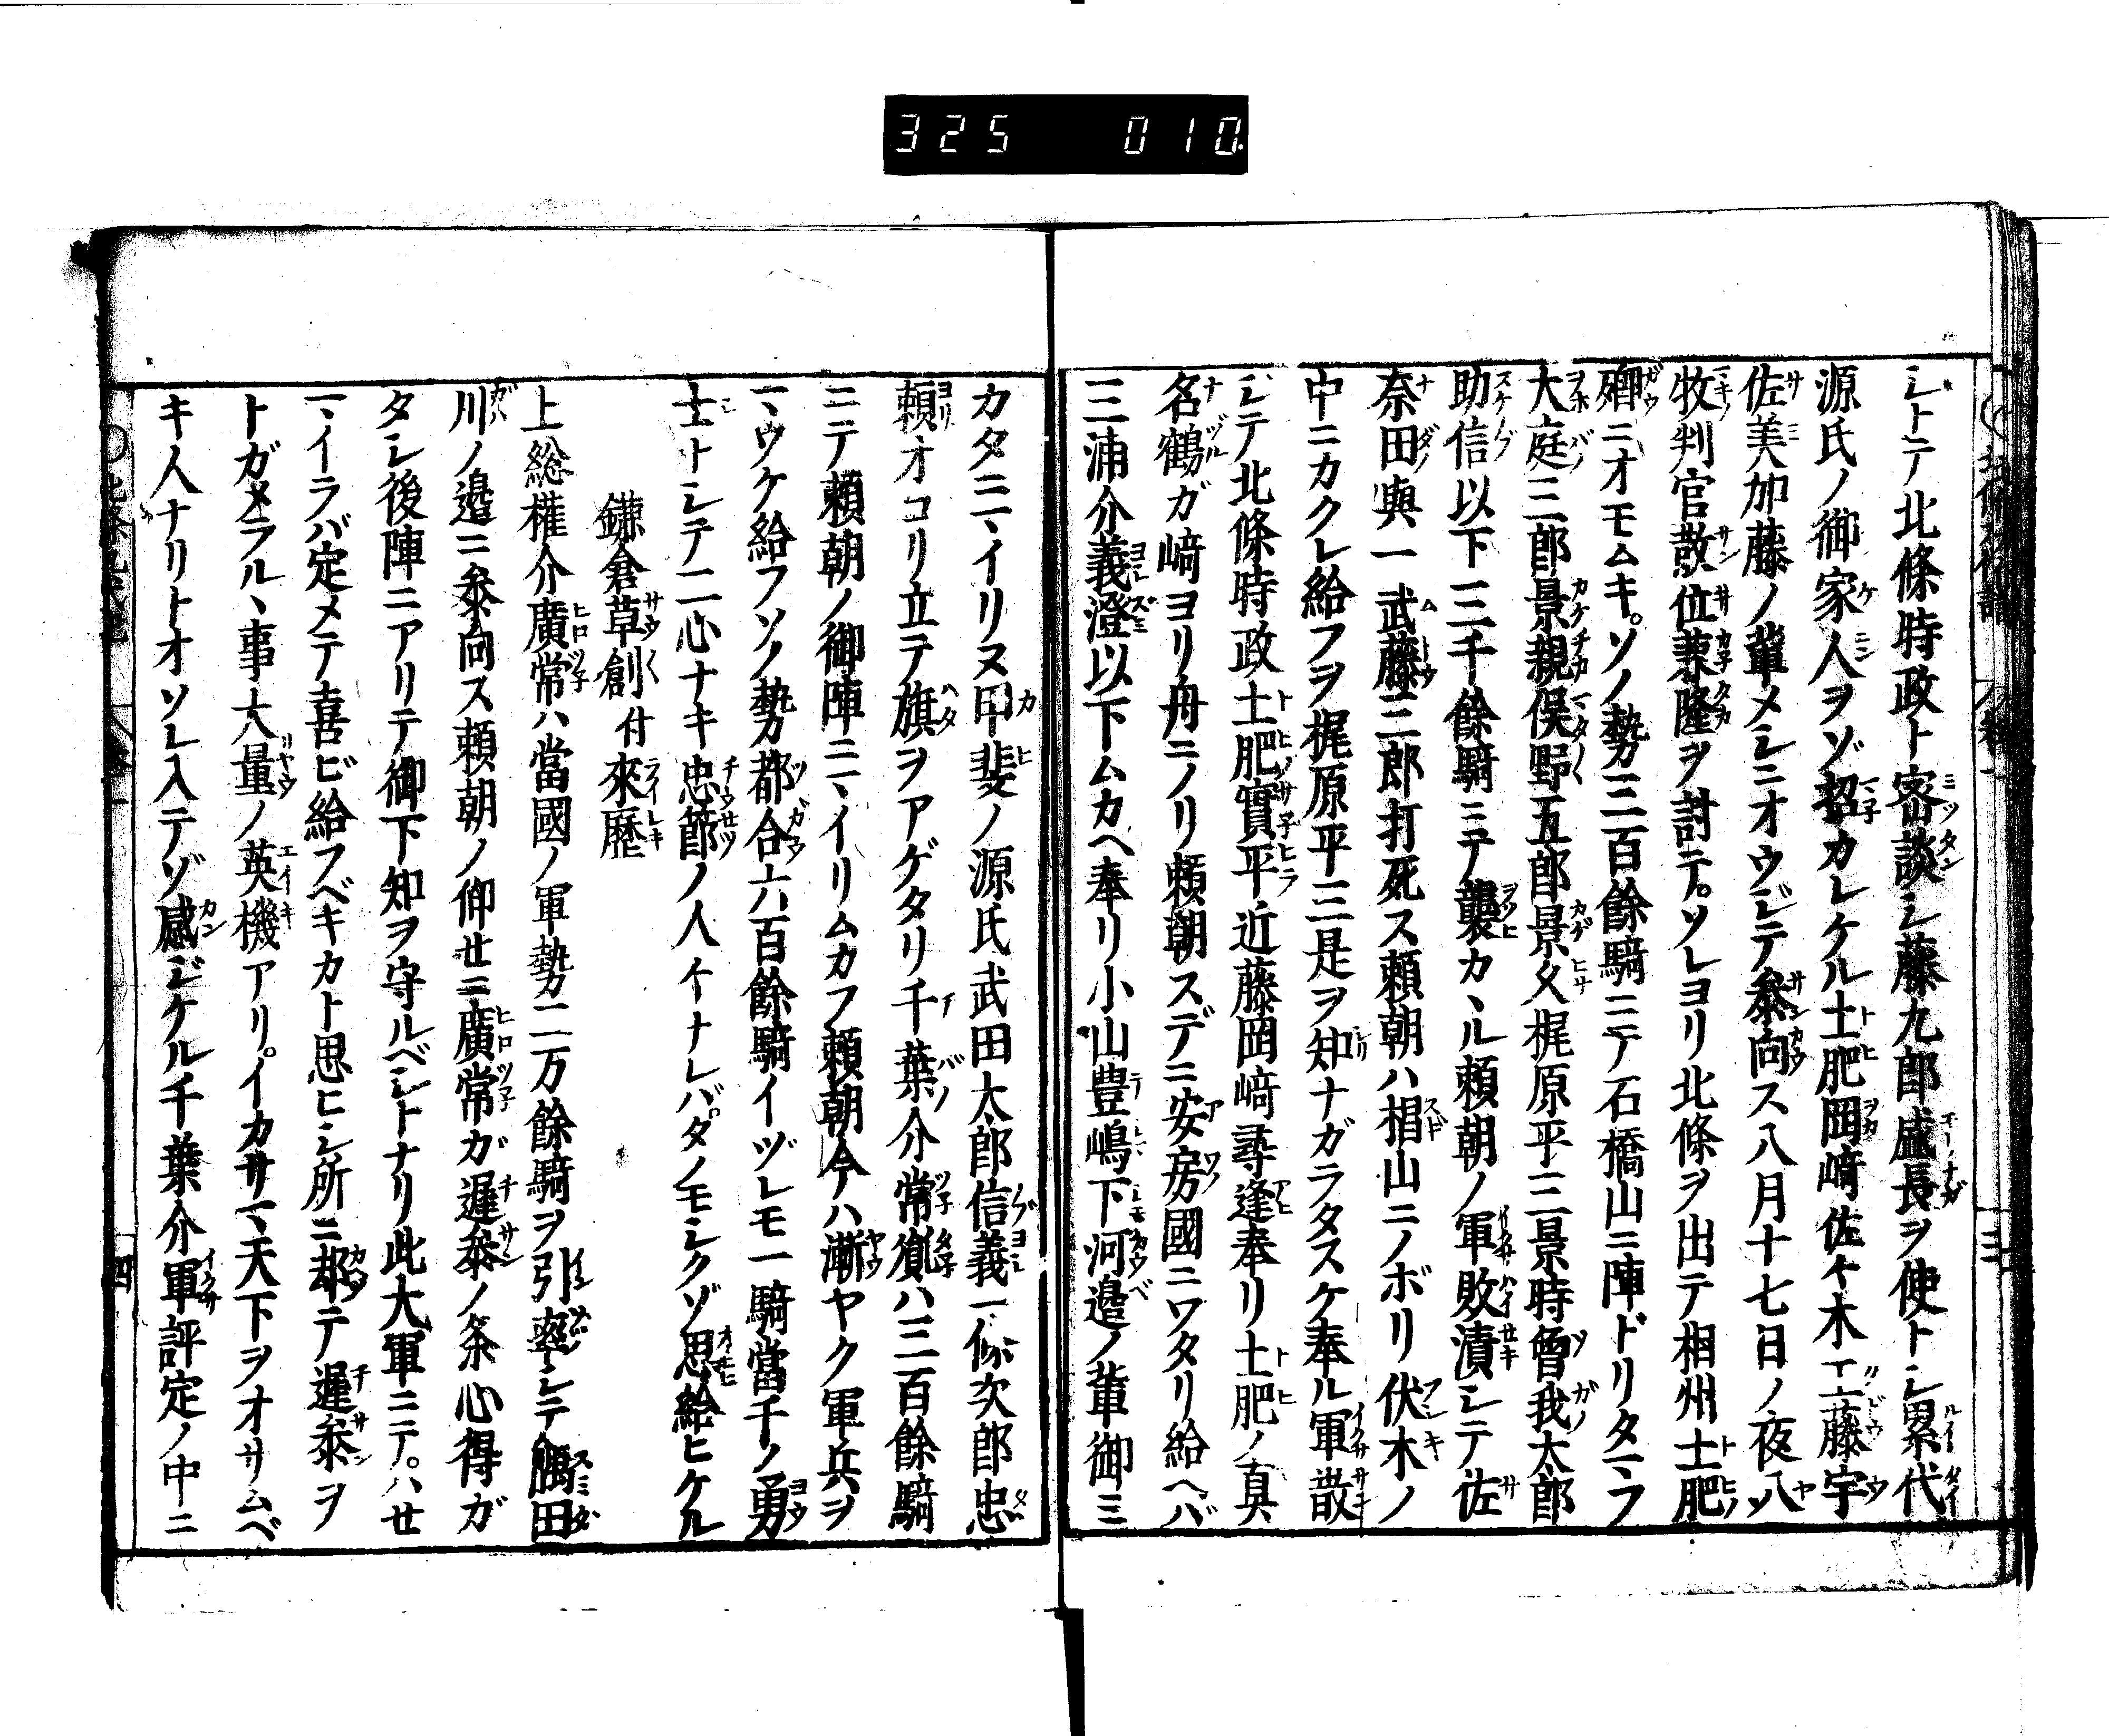 325 010
シトテ北條時政ト密談シ藤九郎盛長ヲ使トシ累代
源氏ノ御家人ヲゾ招カレケル土肥岡﨑佐々木工藤宇
佐美加藤ノ輩メシニオウジテ參向ス八月十七日ノ夜八
牧判官散位兼隆ヲ討テ。ソレヨリ北條ヲ出テ相州土肥
郷ニオモムキ。ソノ勢三百餘騎ニテ石橋山ニ陣ドリタマフ
大庭三郎景親俣野五郎景久梶原平三景時曽我太郎
助信以下三千餘騎ニテ襲カヽル頼朝ノ軍敗漬シテ佐
奈田與一武藤三郎打死ス頼朝ハ椙山ニノボリ伏木ノ
中ニカクレ給フヲ梶原平三是ヲ知ナガラタスケ奉ル軍散
ジテ北條時政土肥實平近藤岡﨑尋逢奉リ土肥ノ真
名鶴ガ﨑ヨリ舟ニノリ頼朝スデニ安房國ニワタリ給ヘバ
三浦介義澄以下ムカヘ奉リ小山豊嶋下河邉ノ輩御ミ
カタニマイリヌ甲斐ノ源氏武田太郎信義一條次郎忠
頼オコリ立テ旗ヲアゲタリ千葉介常胤ハ三百餘騎
ニテ頼朝ノ御陣ニマイリムカフ頼朝今ハ漸ヤク軍兵ヲ
マウケ給フソノ勢都合六百餘騎イヅレモ一騎當千ノ勇
士トシテ二心ナキ忠節ノ人々ナレバ。タノモシクゾ思給ヒケル
鎌倉草創 付 來歴
上総權介廣常ハ當國ノ軍勢二万餘騎ヲ引率シテ隅田
川ノ邉ニ參向ス頼朝ノ仰せニ廣常ガ遅參ノ条心得ガ
タシ後陣ニアリテ御下知ヲ守ルベシトナリ此大軍ニテ。ハせ
マイラバ定メテ喜ビ給フベキカト思ヒシ所ニ却テ遅參ヲ
トガメラルヽ事大量ノ英機アリ。イカサマ天下ヲオサムベ
キ人ナリトオソレ入テゾ感ジケル千葉介軍評定ノ中ニ
四